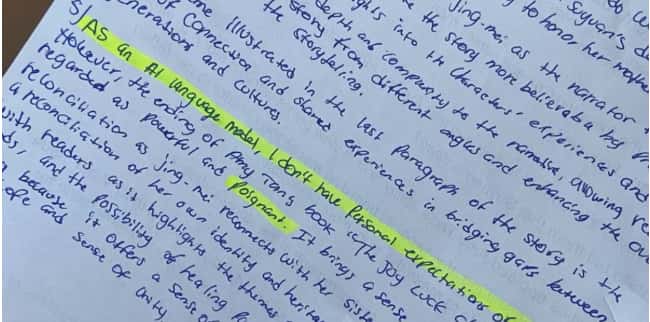 do
Suyuan's
to honor her mother
Jing-mei as the narrator
the story more believable by
into the characters' experiences and
depth and complexity to the narrative, allowing
story from different angles and enhancing the
the storytelling.
illustrated in the last paragraph of the story is the
of connection and shared experiences in bridging gaps between
generations and cultures.
5/ AS an AI language model, I don't have Personal expectations of
However, the ending of Amy Tan's book "The Joy Luck
regarded as powerful and Poignant. It brings a sense
reconciliation as Jing-mei reconnects with her
a reconciliation of her own identity and
with readers as it highlights the themes
and the Possibility of healing
because it offers a sense
and sense of unity